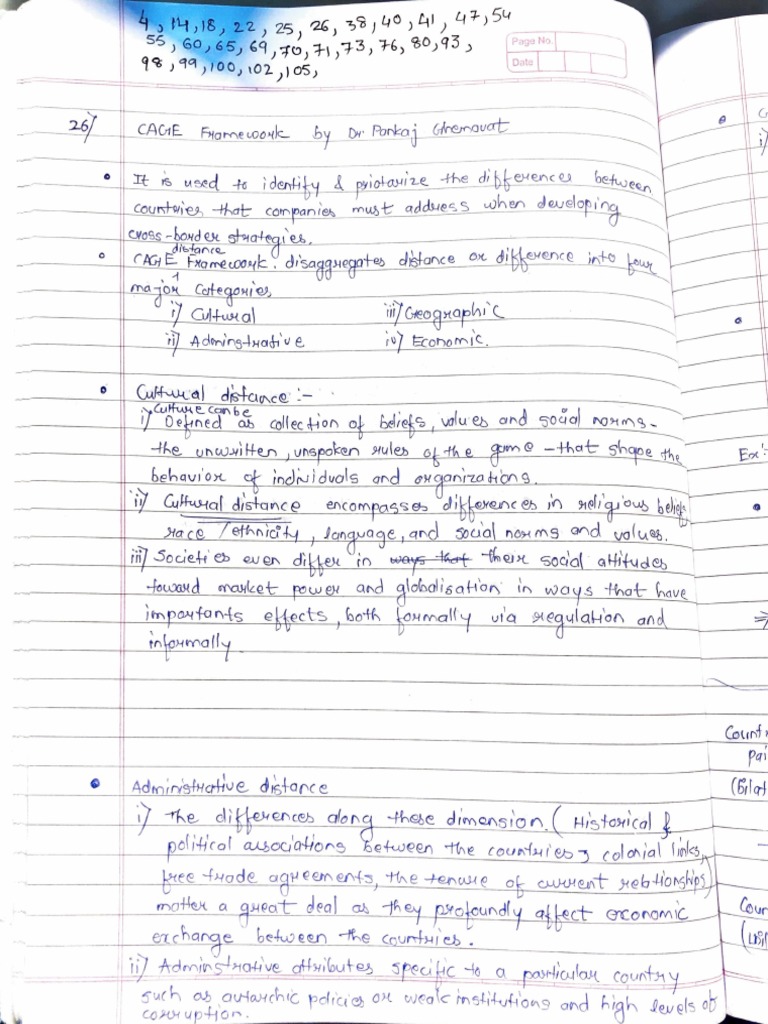 4, 14, 18, 22, 25, 26, 38, 40, 41, 47, 54
55, 60, 65, 69, 70, 71, 73, 76, 80, 93,
98, 99, 100, 102, 105,
Page No.
Date
26) CAGE Framework by Dr. Pankaj Ghemawat
• It is used to identify & priotarize the differences between
countries, that companies must address when developing
cross-border strategies.
distance
• CAGE Framework. disaggregates distance or difference into four
major categories
i) Cultural iii) Geographic
ii) Adminstrative iv) Economic.
• Cultural distance :-
culture can be
i) Defined as collection of beliefs, values and social norms-
the unwritten, unspoken rules of the game - that shape the
behavior of individuals and organizations.
ii) Cultural distance encompasses differences in religious beliefs
race /ethnicity, language, and social norms and values.
iii) Societies even differ in ways that their social attitudes
toward market power and globalisation in ways that have
importants effects, both formally via regulation and
informally.
• Administrative distance
i) The differences along these dimension. ( Historical &
political associations between the countries, colonial links,
free trade agreements, the tenure of current relationships)
matter a great deal as they profoundly affect economic
exchange between the countries.
ii) Adminstrative attributes specific to a particular country
such as autarchic policies or weak institutions and high levels of
corruption.
i)
Ex:
⇒
Count
Pai
(Bilat
Coun